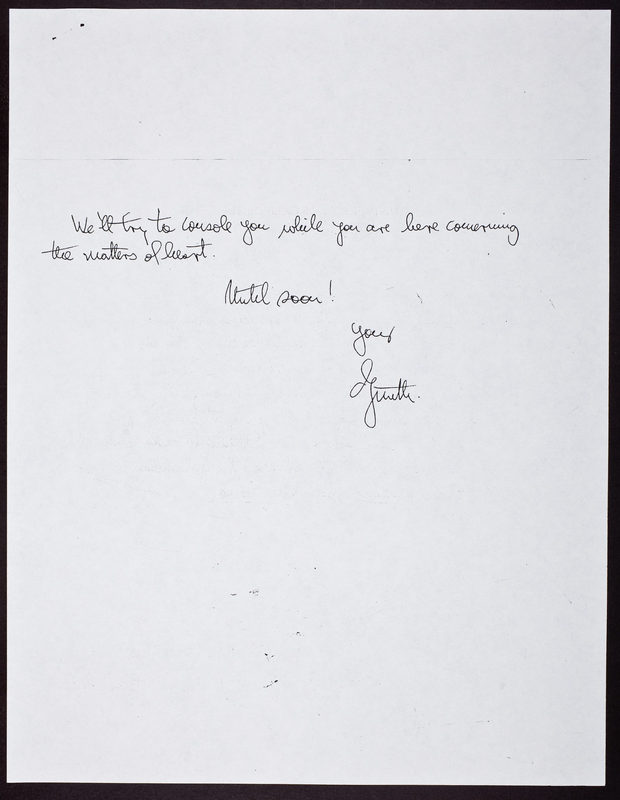 We'll try to console you while you are here concerning
the matters of heart.
Until soon!
Your